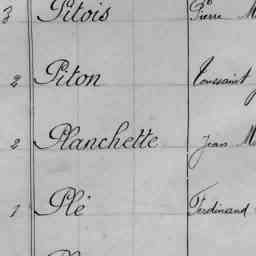 3 Pitois Pierre M
2 Piton Toussaint
2 Planchette Jean M
1 Plé Ferdinand